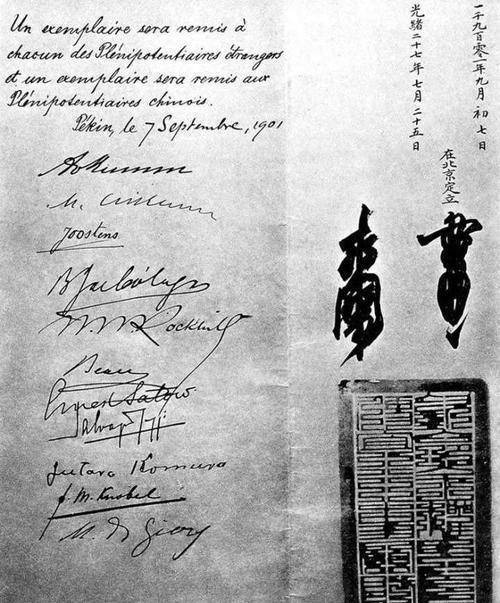 Un exemplaire sera remis à
chacun des Plénipotentiaires étrangers
et un exemplaire sera remis aux
Plénipotentiaires chinois.
Pékin, le 7 Septembre, 1901
A v Mumm
M. Czikann
Joostens
B. J. de Cólogan
W. W. Rockhill
Beau
Ernest Satow
Salvago Raggi
Jutaro Komura
F. M. Knobel
M. de Giers
一千九百零一年九月初七日
光緒二十七年七月二十五日
在北京定立